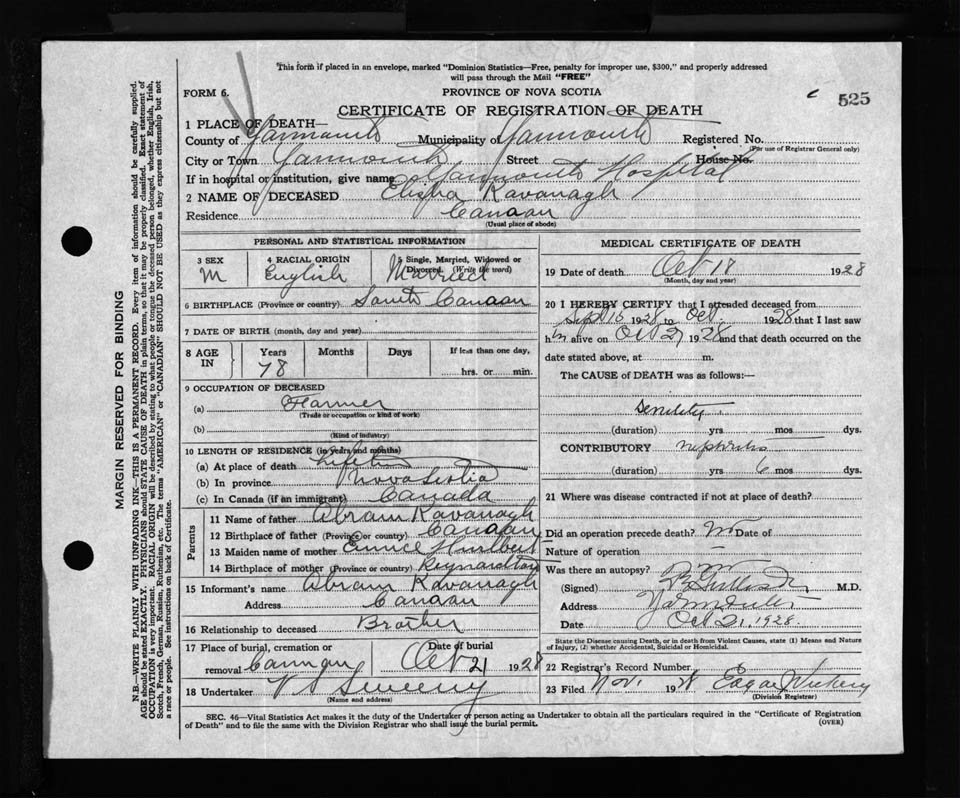 This form if placed in an envelope, marked "Dominion Statistics—Free, penalty for improper use, $300," and properly addressed
will pass through the Mail "FREE"
FORM 6.
PROVINCE OF NOVA SCOTIA
525
CERTIFICATE OF REGISTRATION OF DEATH
1 PLACE OF DEATH—
County of Yarmouth Municipality of Yarmouth Registered No.
(For use of Registrar General only)
City or Town Yarmouth Street House No.
If in hospital or institution, give name Yarmouth Hospital
2 NAME OF DECEASED Elisha Kavanagh
Residence Canaan
(Usual place of abode)
PERSONAL AND STATISTICAL INFORMATION
3 SEX
M
4 RACIAL ORIGIN
English
5 Single, Married, Widowed or
Divorced. (Write the word)
Married
6 BIRTHPLACE (Province or country) South Canaan
7 DATE OF BIRTH (month, day and year)
8 AGE
IN
Years
78
Months
Days
If less than one day,
hrs. or min.
9 OCCUPATION OF DECEASED
(a) Farmer
(Trade or occupation or kind of work)
(b)
(Kind of industry)
10 LENGTH OF RESIDENCE (in years and months)
(a) At place of death
(b) In province Nova Scotia
(c) In Canada (if an immigrant) Canada
Parents
11 Name of father Abram Kavanagh
12 Birthplace of father (Province or country) Canaan
13 Maiden name of mother Eunice Hurlbert
14 Birthplace of mother (Province or country) Reynardton
15 Informant's name Abram Kavanagh
Address Canaan
16 Relationship to deceased Brother
17 Place of burial, cremation or
removal Cannan
Date of burial
Oct 21 1928
18 Undertaker V S Sweeny
(Name and address)
MEDICAL CERTIFICATE OF DEATH
19 Date of death Oct 18 1928
(Month, day and year)
20 I HEREBY CERTIFY that I attended deceased from
Sept 15 1928 to Oct. 1928 that I last saw
him alive on Oct 2 1928 and that death occurred on the
date stated above, at m.
The CAUSE of DEATH was as follows:—
Senility
(duration) yrs mos dys.
CONTRIBUTORY nephritis
(duration) yrs 6 mos dys.
21 Where was disease contracted if not at place of death?
Did an operation precede death? no Date of
Nature of operation —
Was there an autopsy? no
(Signed) M.D.
Address Yarmouth
Date Oct 21, 1928.
State the Disease causing Death, or in death from Violent Causes, state (1) Means and
Nature of Injury, (2) whether Accidental, Suicidal or Homicidal.
22 Registrar's Record Number
23 Filed Nov. 1 1928 Edgar Vickery
(Division Registrar)
SEC. 46—Vital Statistics Act makes it the duty of the Undertaker or person acting as Undertaker to obtain all the particulars required in the "Certificate of Registration
of Death" and to file the same with the Division Registrar who shall issue the burial permit.
(OVER)
MARGIN RESERVED FOR BINDING
N.B.—WRITE PLAINLY WITH UNFADING INK—THIS IS A PERMANENT RECORD. Every item of information should be carefully supplied.
AGE should be stated EXACTLY. PHYSICIANS should STATE CAUSE OF DEATH in plain terms, so that it may be properly classified. Exact statement of
OCCUPATION is very important. RACIAL ORIGIN will be described by stating to what people or tongue the deceased person belonged, whether English, Irish,
Scotch, French, German, Russian, Ruthenian, etc. The terms "AMERICAN" or "CANADIAN" SHOULD NOT BE USED as they express citizenship but not
a race or people. See instructions on back of Certificate.